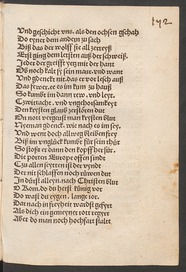 172
Vnd geschicht vns. als den ochsen gschah
Do eyner dem andern zů sach
Biß das der wolff sie all zerreyß
Erst ging dem letzten auß der schweiß.
Jeder der greifft yetz mit der hant
Ob noch kalt sy sein maur. vnd want
Vnd gdenckt nit. das er vor lesch auß
Das fewer. ee es im kum zů hauß
So kumbt im dann rew. vnd leyt
Zwitracht. vnd vngehorsamkeyt
Den kristen glaub zerstören důt
On not vergüßt man kristen blůt
Nyeman gdenck. wie nach es im sey.
Vnd went doch allweg bleiben frey
Biß im vnglück kumbt für sein thür
So stoßt er dann den kopff her für.
Die porten Europe offen sindt
Zů allen seyten ist der vyndt
Der nit schlaffen noch růwen důt
In dürst alleyn. nach Christen blůt
O Rom. do du hetst künig vor
Do wast du eygen. lange ior.
Dar nach in freiheit wardst gefyrt
Als dich ein gemeyner rott regyrt
Aber do man noch hochfart stalt